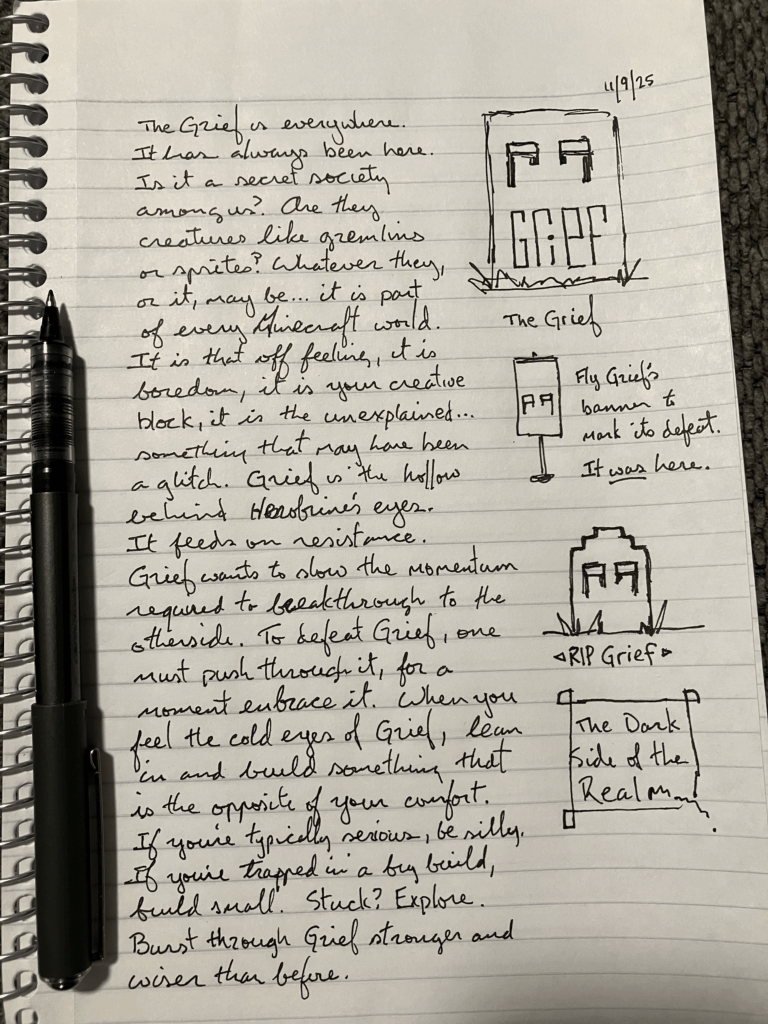 11/9/25
The Grief is everywhere.
It has always been here.
Is it a secret society
among us? Are they
creatures like gremlins
or sprites? Whatever they,
or it, may be... it is part
of every Minecraft world.
It is that off feeling, it is
boredom, it is your creative
block, it is the unexplained...
something that may have been
a glitch. Grief is the hollow
behind Herobrine's eyes.
It feeds on resistance.
Grief wants to slow the momentum
required to breakthrough to the
otherside. To defeat Grief, one
must push through it, for a
moment embrace it. When you
feel the cold eyes of Grief, lean
in and build something that
is the opposite of your comfort.
If you're typically serious, be silly.
If you're trapped in a big build,
build small. Stuck? Explore.
Burst through Grief stronger and
wiser than before.
GRIEF
The Grief
Fly Grief's
banner to
mark its defeat.
It was here.
RIP Grief
The Dark
Side of the
Realm...